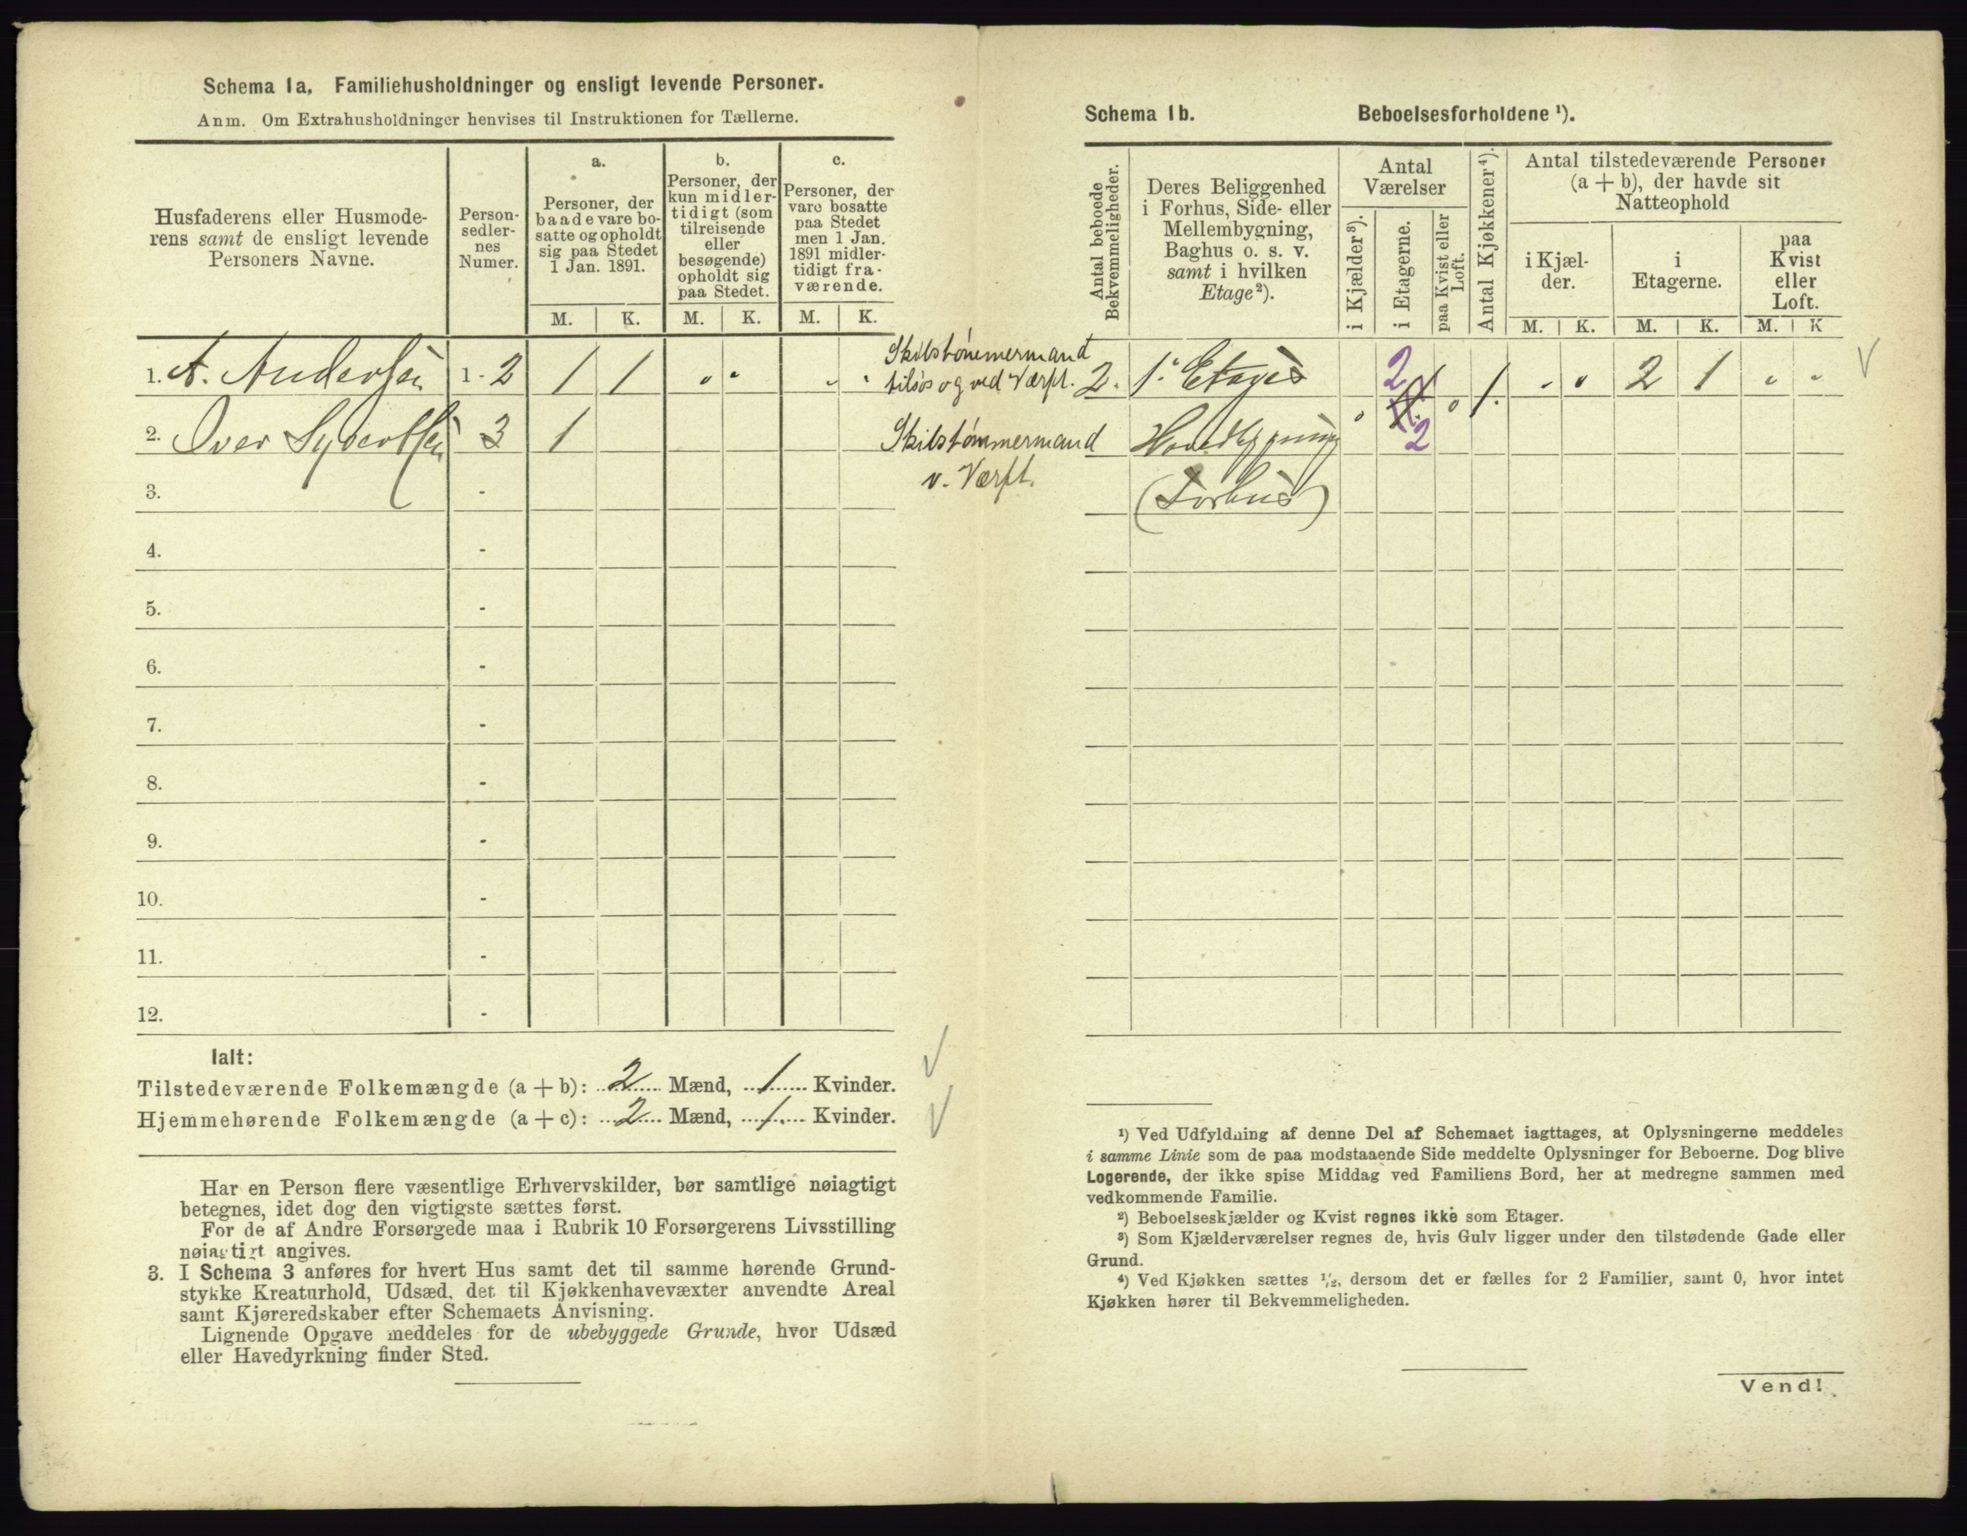 Schema 1a. Familiehusholdninger og ensligt levende Personer.
Anm. Om Extrahusholdninger henvises til Instruktionen for Tællerne.
Husfaderens eller Husmoderens samt de ensligt levende Personers Navne.
Personsedlernes Numer.
a. Personer, der baade vare bosatte og opholdt sig paa Stedet 1 Jan. 1891.
b. Personer, der kun midlertidigt (som tilreisende eller besøgende) opholdt sig paa Stedet.
c. Personer, der vare bosatte paa Stedet men 1 Jan. 1891 midlertidigt fraværende.
M. K. M. K. M. K.
1. A. Andersen 1 - 2 1 1 " " " " Skibstømmermand
tilsøs og ved Værft.
2. Iver Syvertsen 3 1 Skibstømmermand
v. Værft.
3. -
4. -
5. -
6. -
7. -
8. -
9. -
10. -
11. -
12. -
Ialt:
Tilstedeværende Folkemængde (a + b): 2 Mænd, 1 Kvinder.
Hjemmehørende Folkemængde (a + c): 2 Mænd, 1. Kvinder.
Har en Person flere væsentlige Erhvervskilder, bør samtlige nøiagtigt
betegnes, idet dog den vigtigste sættes først.
For de af Andre Forsørgede maa i Rubrik 10 Forsørgerens Livsstilling
nøiagtigt angives.
3. I Schema 3 anføres for hvert Hus samt det til samme hørende Grund-
stykke Kreaturhold, Udsæd, det til Kjøkkenhavevæxter anvendte Areal
samt Kjøreredskaber efter Schemaets Anvisning.
Lignende Opgave meddeles for de ubebyggede Grunde, hvor Udsæd
eller Havedyrkning finder Sted.
Schema 1b. Beboelsesforholdene ¹).
Antal beboede Bekvemmeligheder.
Deres Beliggenhed i Forhus, Side- eller Mellembygning, Baghus o. s. v. samt i hvilken Etage²).
Antal Værelser
i Kjælder³).
i Etagerne.
paa Kvist eller Loft.
Antal Kjøkkener⁴).
Antal tilstedeværende Personer (a + b), der havde sit Natteophold
i Kjælder.
i Etagerne.
paa Kvist eller Loft.
M. K. M. K. M. K
2. 1. Etages 2 1. " " 2 1 " "
Hovedbygning 2
(Forhus)
¹) Ved Udfyldning af denne Del af Schemaet iagttages, at Oplysningerne meddeles
i samme Linie som de paa modstaaende Side meddelte Oplysninger for Beboerne. Dog blive
Logerende, der ikke spise Middag ved Familiens Bord, her at medregne sammen med
vedkommende Familie.
²) Beboelseskjælder og Kvist regnes ikke som Etager.
³) Som Kjælderværelser regnes de, hvis Gulv ligger under den tilstødende Gade eller
Grund.
⁴) Ved Kjøkken sættes ½, dersom det er fælles for 2 Familier, samt 0, hvor intet
Kjøkken hører til Bekvemmeligheden.
Vend!